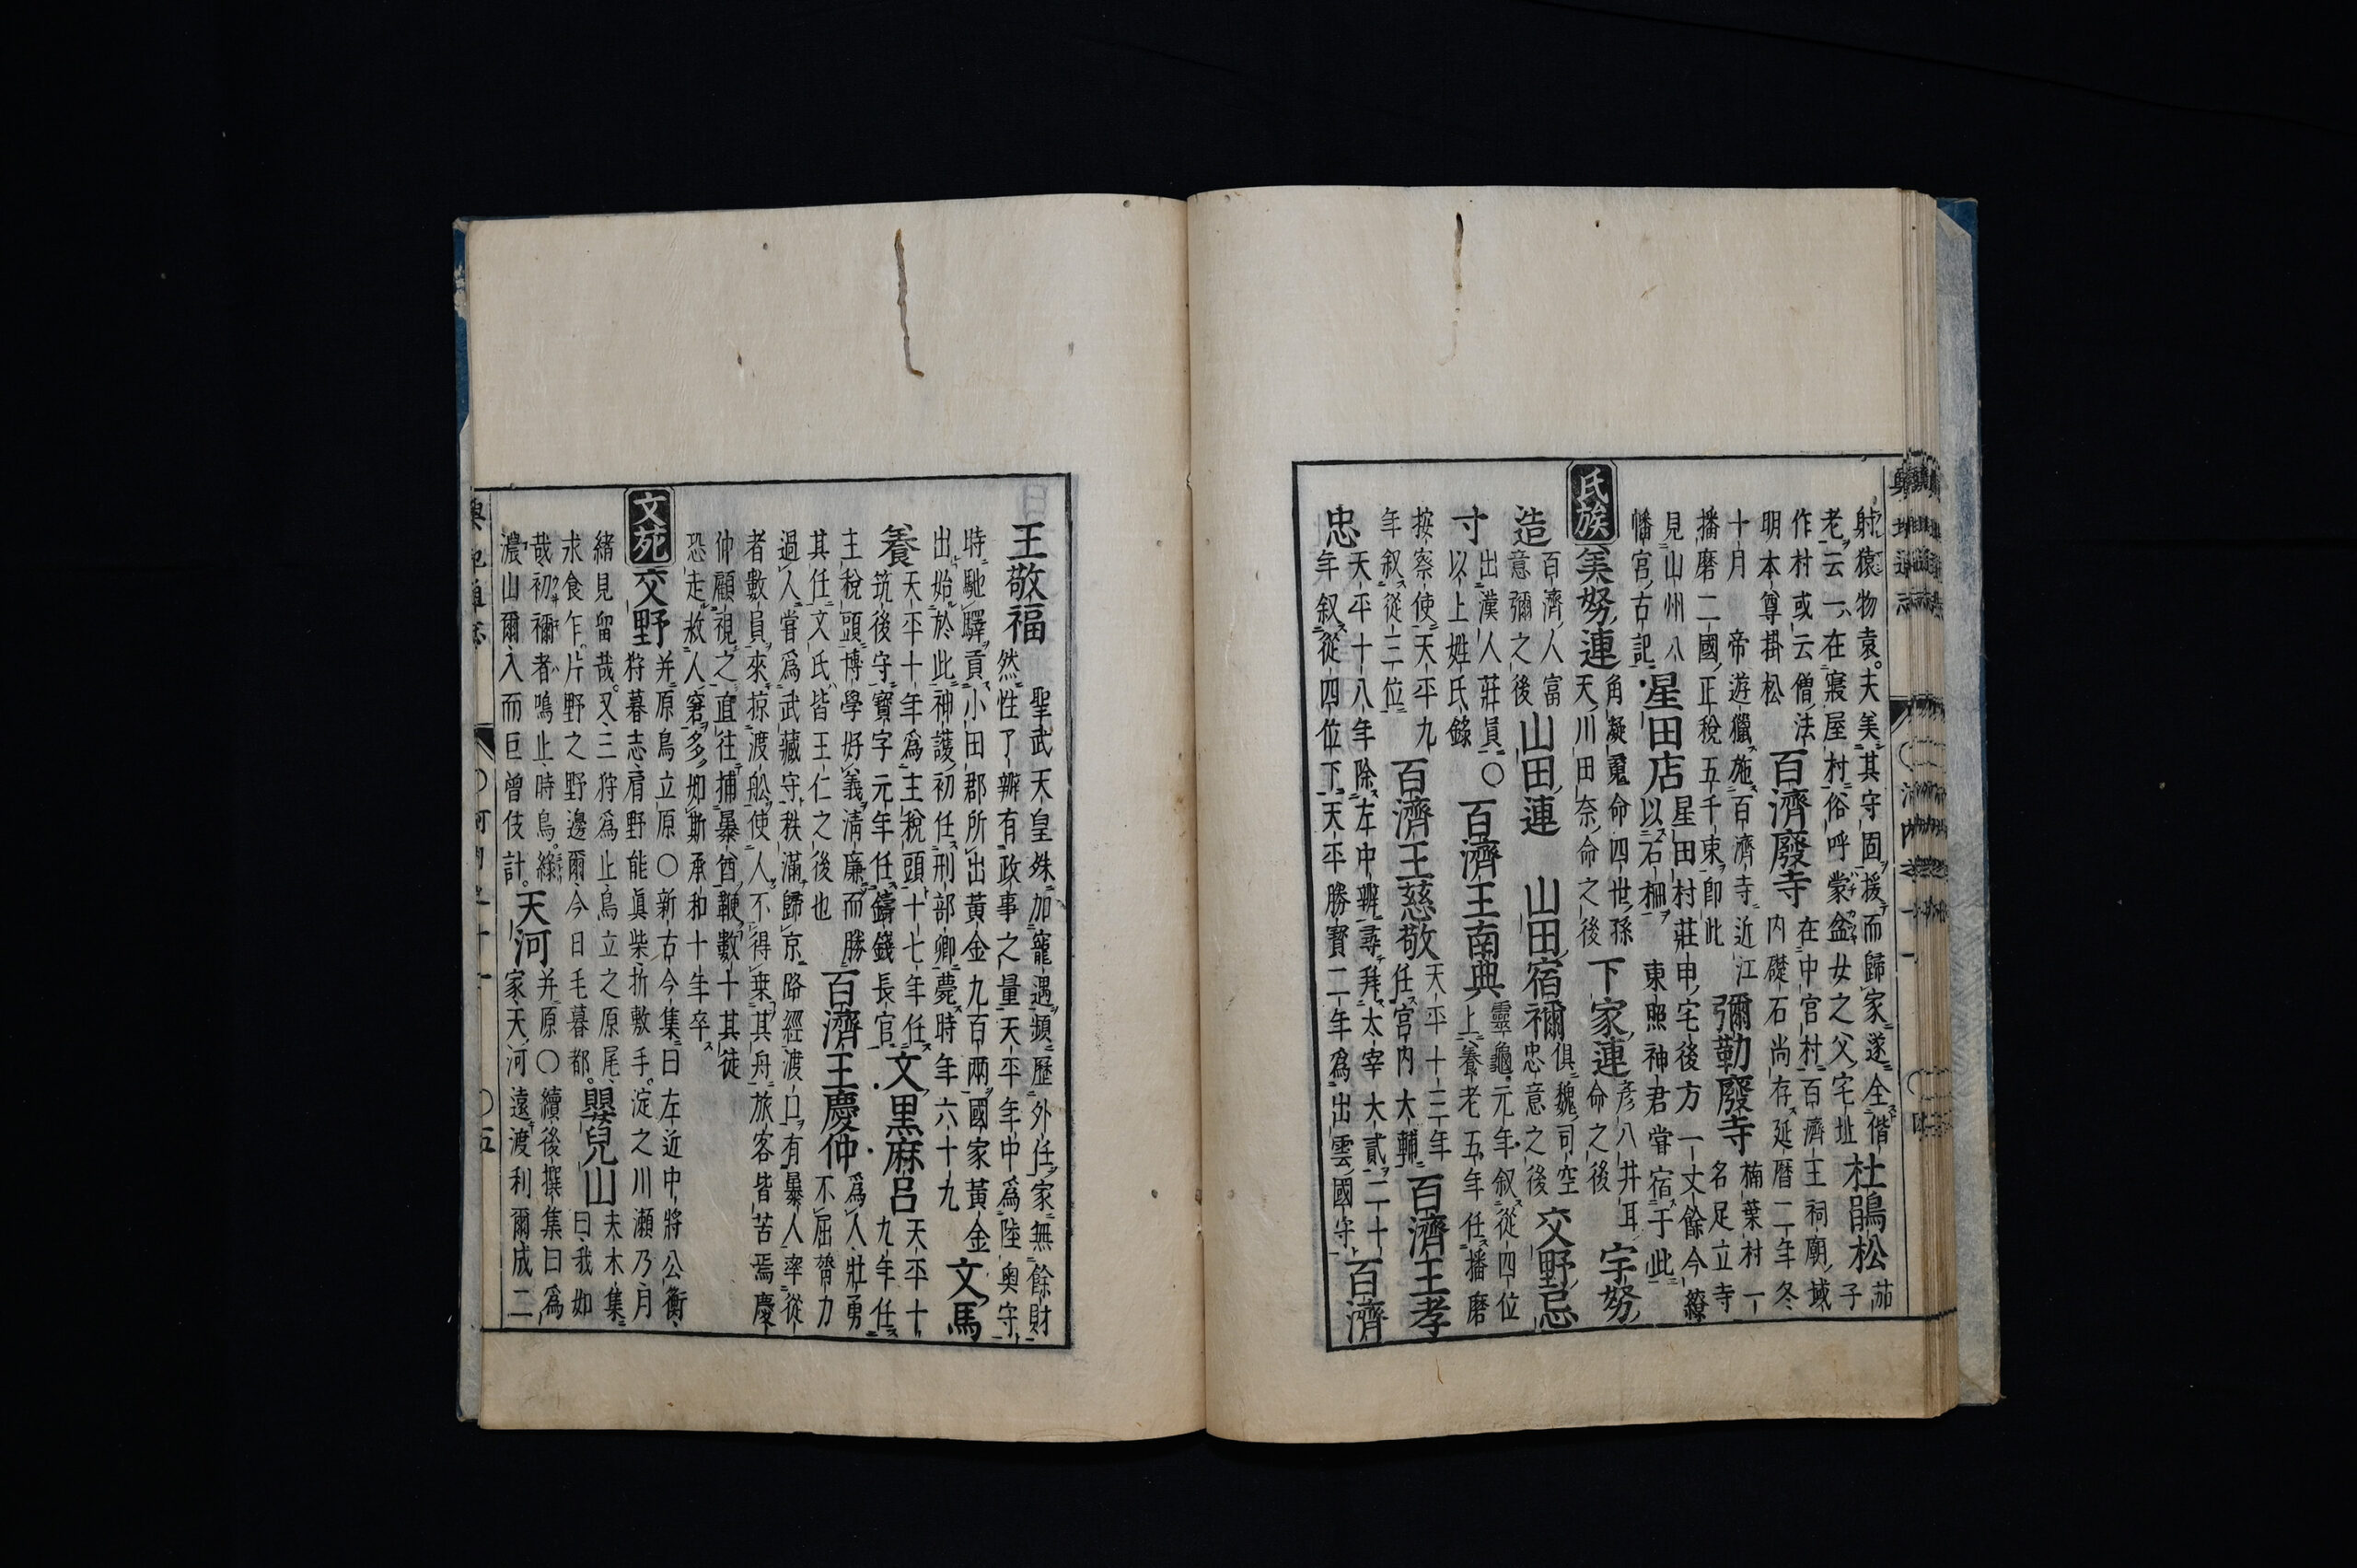 射猿物袁。夫美其守固援而歸家遂全偕
老云一在寢屋村俗呼蒙盆女之父宅址
杜鵑松
茄
子
作村或云僧法
明本尊掛松
百濟廢寺
在中宮村百濟王祠廟域
内礎石尚存延暦二年冬
十月帝遊獵施百濟寺近江
播磨二國正税五千束即此
彌勒廢寺
楠葉村一
名足立寺
見山州八
幡宮古記
星田店
星田村莊申宅後方一丈餘今繚
以石柵東照神君甞宿于此
氏族
美努連
角凝魂命四世孫
天川田奈命之後
下家連
彦八井耳
命之後
宇努
造
百濟人富
意彌之後
山田連 山田宿禰
俱魏司空
忠意之後
交野忌
寸
出漢人莊員○
以上姓氏錄
百濟王南典
靈龜元年叙從四位
上養老五年任播磨
按察使天平九
年叙從三位
百濟王慈敬
天平十二年
任宮内大輔
百濟王孝
忠
天平十八年除左中辨尋拜太宰大貳二十
年叙從四位下天平勝寶二年為出雲國守
百濟
王敬福
聖武天皇殊加寵遇頻歴外任家無餘財
然性了辨有政事之量天平年中爲陸奥守
時馳驛貢小田郡所出黃金九百兩國家黃金
出始於此神護初任刑部卿薨時年六十九
文馬
養
天平十年爲主税頭十七年任
筑後守寶字元年任鑄錢長官
文黒麻呂
天平十
九年任
主税頭博學好義清廉而勝
其任文氏皆王仁之後也
百濟王慶仲
爲人壯勇
不屈膂力
過人甞爲武藏守秩滿歸京路經渡口有暴人率從
者數員來掠渡舩使人不得乗其舟旅客皆苦焉慶
仲顧視之直往捕暴酋鞭數十其徒
恐走赦人窘多如斯承和十年卒
文苑
交野
并原鳥立原○新古今集曰左近中將公衡
狩暮志肩野能眞柴折敷手。淀之川瀬乃月
緒見留哉。又三狩爲止鳥立之原尾
求食乍片野之野邊爾今日毛暮都。
嬰兒山
夫木集
曰我如
哉初禰者鳴止時鳥。緑
濃山爾入而巨曾伎計。
天河
并原○續後撰集曰爲
家天河遠渡利爾成二